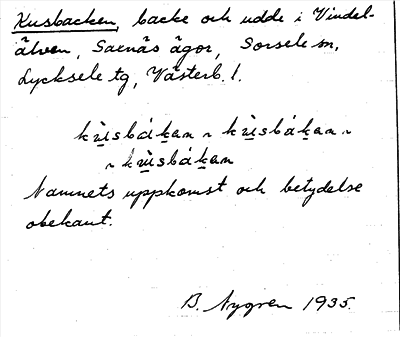 Kusbacken, backe och udde i Vindel-
älven, Saxnäs ägor, Sorsele sn,
Lycksele tg, Västerb. l.
Namnets uppkomst och betydelse
obekant.
B. Nygren 1935.